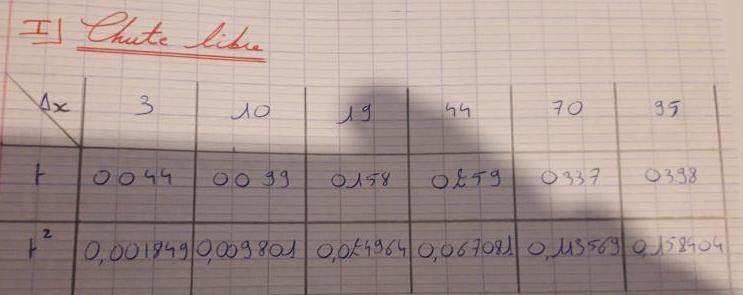 I] Chute libre
Δx 3 10 19 44 70 95
t 0044 0099 0158 0259 0337 0398
t² 0,001849 0,009801 0,024964 0,067081 0,113569 0,158404